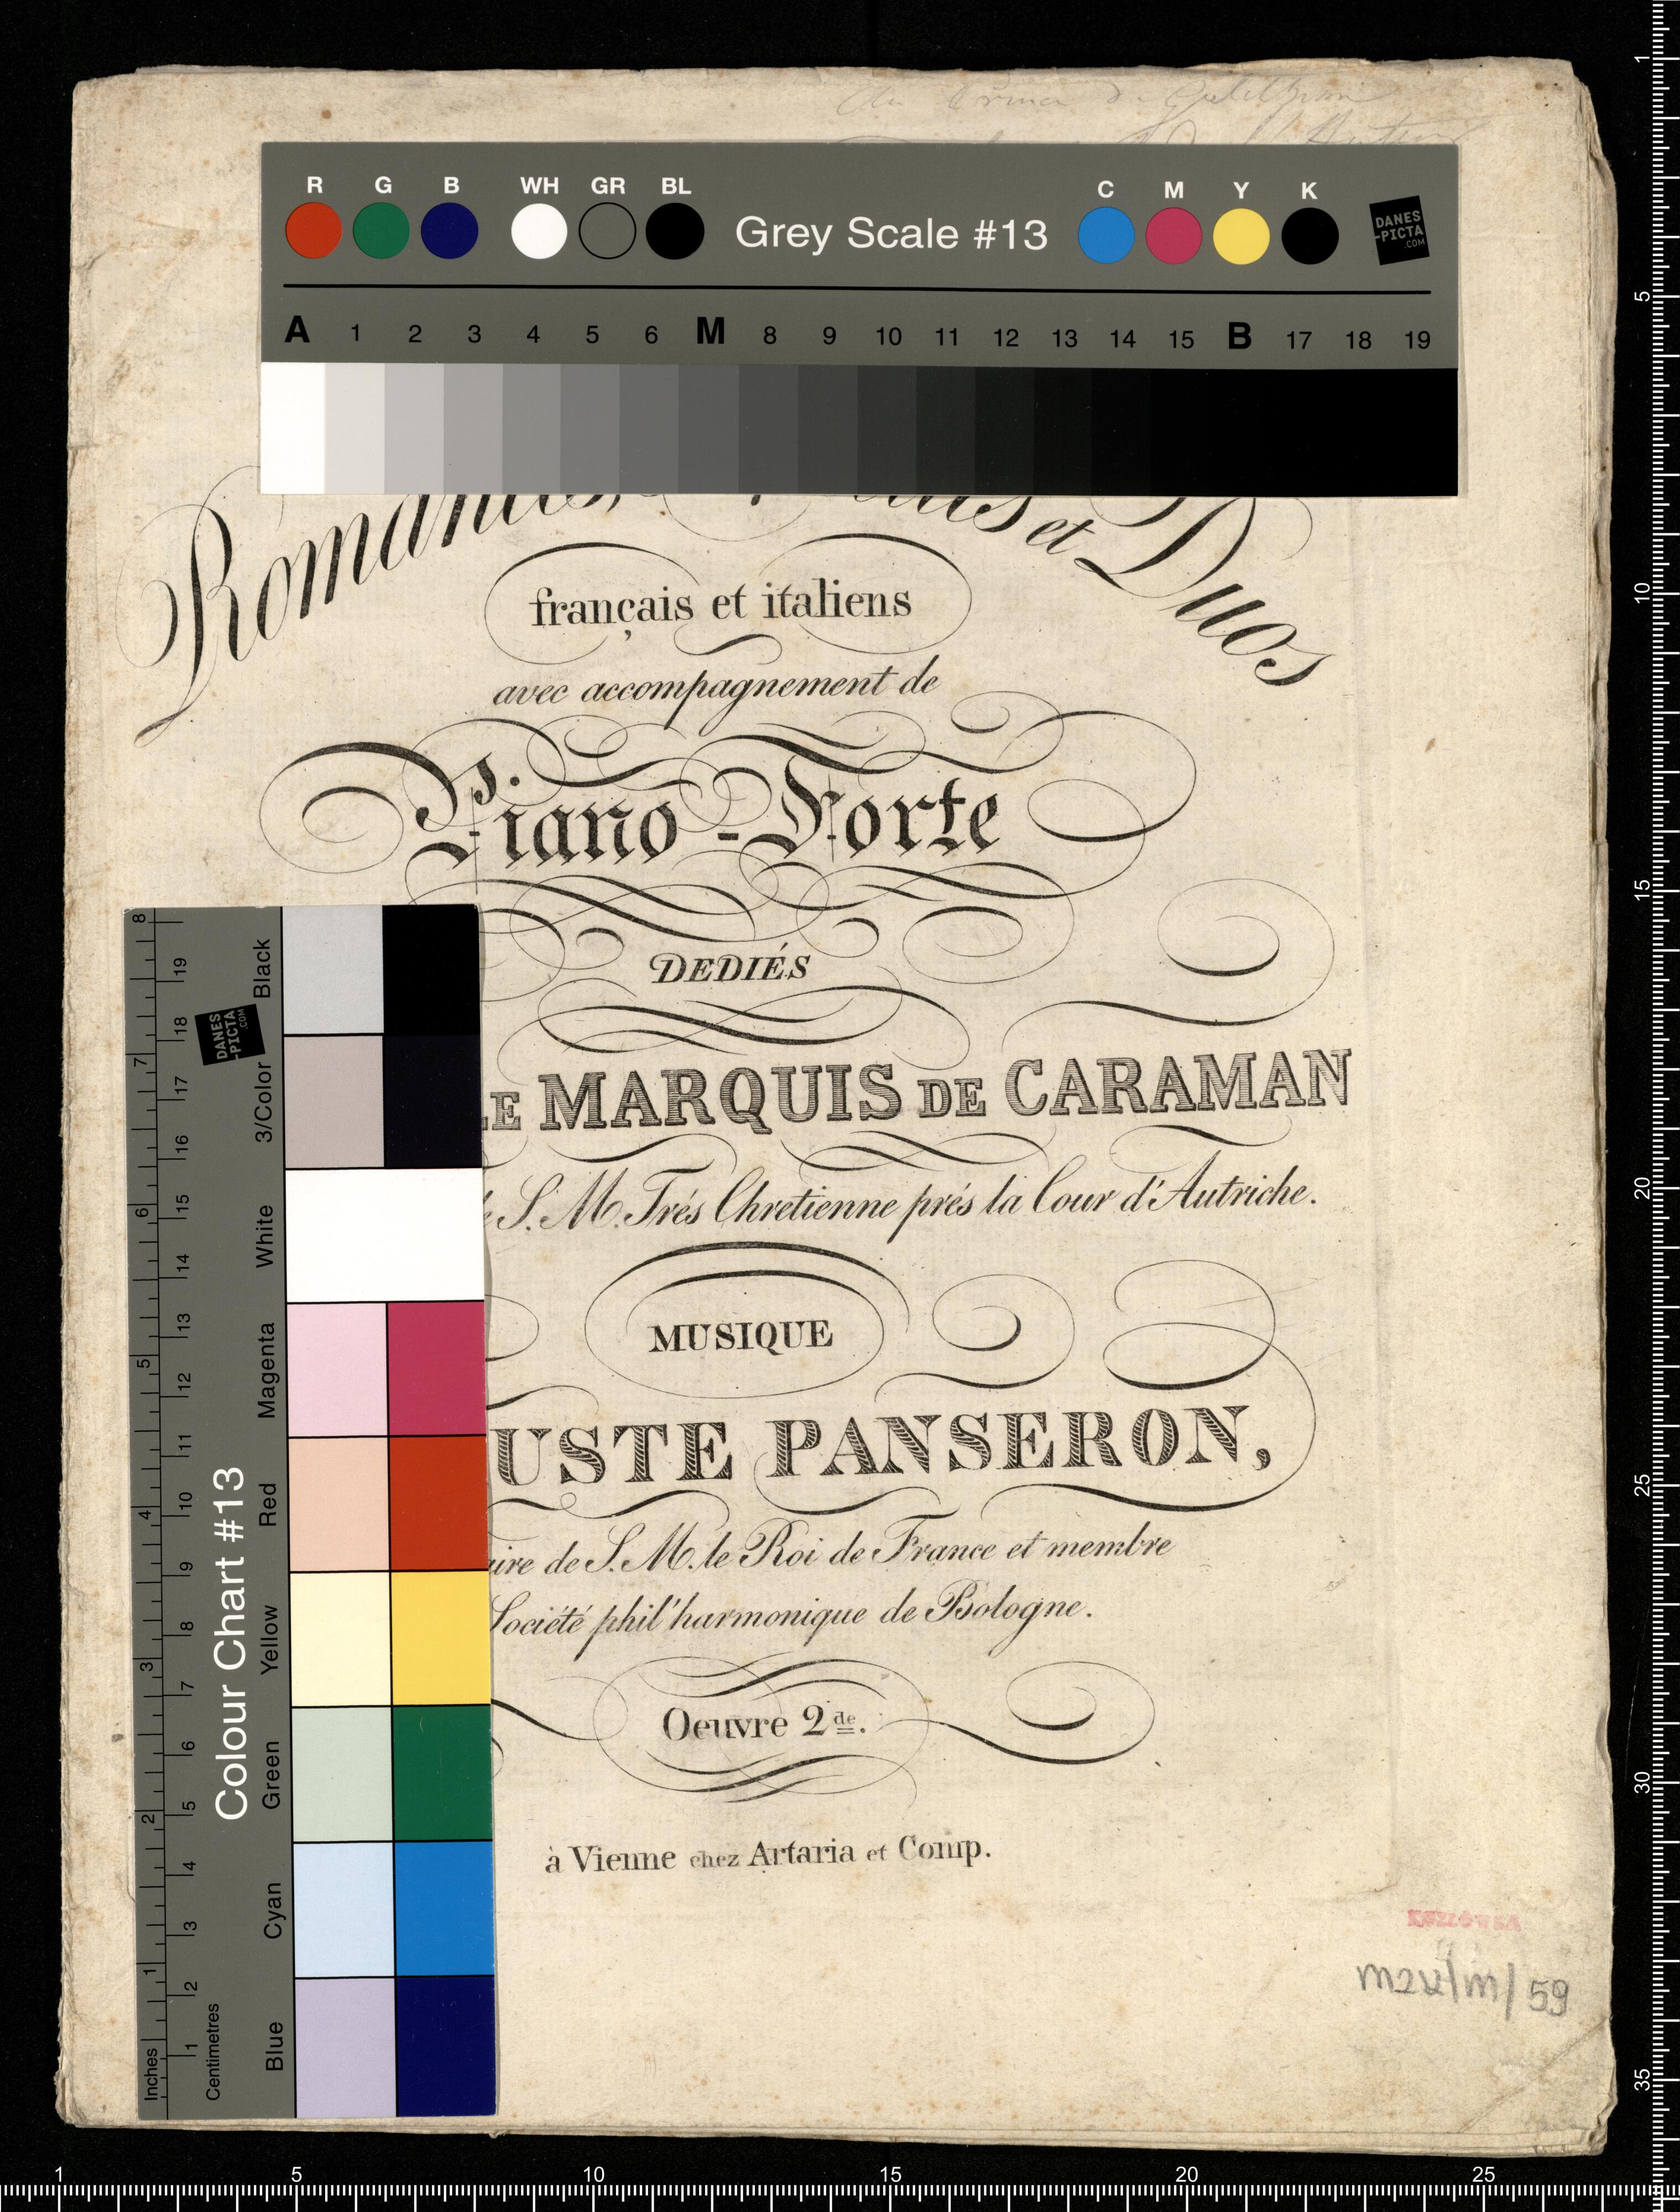 R G B WH GR BL Grey Scale #13 C M Y K DANES-PICTA.COM
A 1 2 3 4 5 6 M 8 9 10 11 12 13 14 15 B 17 18 19
et Duos
français et italiens
avec accompagnement de
Piano-Forte
DEDIÉS
LE MARQUIS DE CARAMAN
S. M. Trés Chretienne prés la Cour d'Autriche.
MUSIQUE
USTE PANSERON,
ire de S. M. le Roi de France et membre
Société phil'harmonique de Bologne.
Oeuvre 2de.
à Vienne chez Artaria et Comp.
KOZŁÓWKA
59
Colour Chart #13
DANES-PICTA.COM
Black
3/Color
White
Magenta
Red
Yellow
Green
Cyan
Blue
8 7 6 5 4 3 2 1 Inches
19 18 17 16 15 14 13 12 11 10 9 8 7 6 5 4 3 2 1 Centimetres
1 5 10 15 20 25 30 35
1 5 10 15 20 25